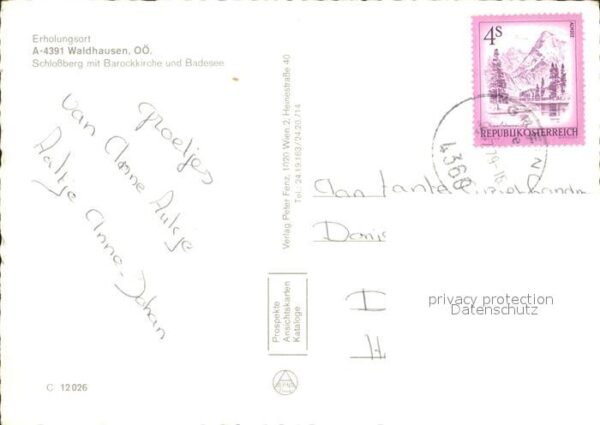 Erholungsort
A-4391 Waldhausen, OÖ.
Schloßberg mit Barockkirche und Badesee
groetjes
van Anne Aukje
Aaltje Anne-Johan
C 12 026
Verlag Peter Fenz, 1020 Wien 2, Heinestraße 40
Tel.: 24 19 163 / 24 20 / 14
Prospekte
Ansichtskarten
Kataloge
4S
REPUBLIK ÖSTERREICH
4360
Aan tante
privacy protection
Datenschutz